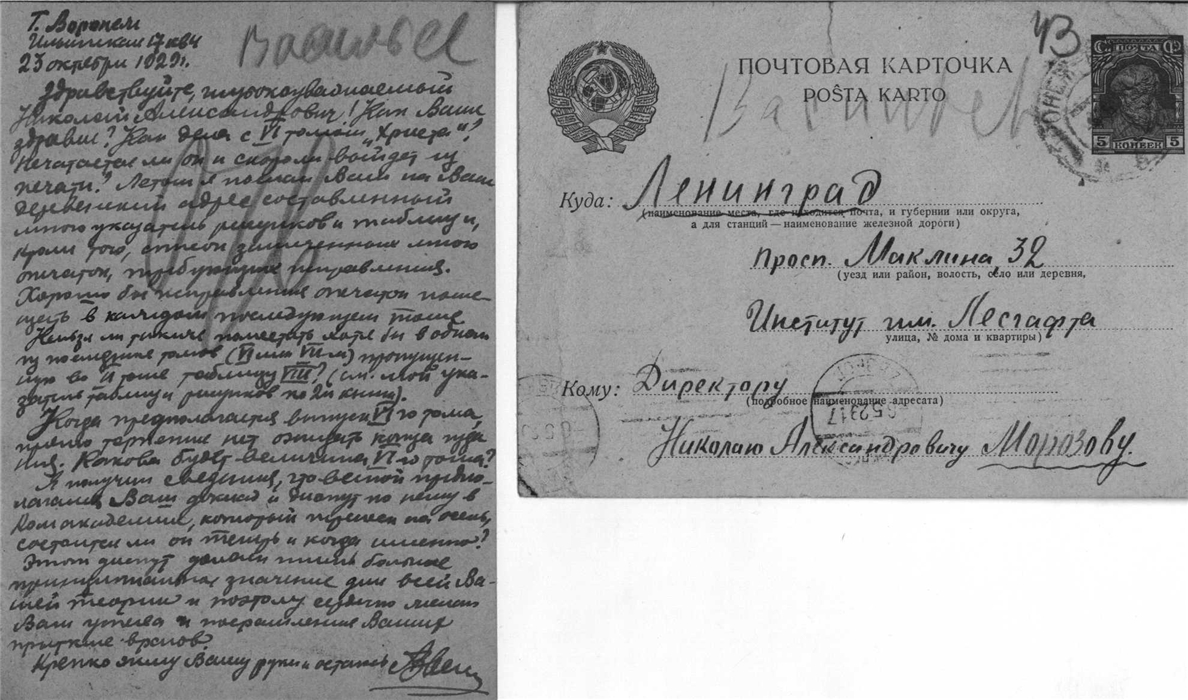 Г. Воронеж
Ильинская 17 кв 4
23 октября 1929 г.
Васильев
Здравствуйте, глубокоуважаемый
Николай Александрович! Как Ваше
здравие? Как дела с VI томом "Христа"?
Печатается ли он и скоро ли выйдет из
печати? Летом я послал Вам на Ваш
деревенский адрес составленный
мною указатель рисунков и таблиц и,
кроме того, список замеченных мною
опечаток, требующих исправления.
Хорошо бы исправления опечаток поме-
щать в каждом последующем томе
Нельзя ли также поместить хотя бы в одном
из последних томов (VI или VII-м) пропущен-
ную во II томе таблицу VIII? (см. мой ука-
затель таблиц и рисунков по 2й книге).
Когда предполагается выпуск VI-го тома,
прямо терпение нет ожидать конца изда
ния. Какова будет величина VI-го тома?
Я получил сведения, что весной предпо-
лагался Ваш доклад и диспут по нему в
Комакадемии, который перенесен на осень,
состоится ли он теперь и когда именно?
Этот диспут должен иметь большое
принципиальное значение для всей Ва-
шей теории и поэтому сердечно желаю
Вам успеха и посрамления Ваших
врагов.
Крепко жму Вашу руку и остаюсь
43
ПОЧТОВАЯ КАРТОЧКА
POŜTA KARTO
Васильев
ПОЧТА
5 КОПЕЕК 5
Куда: Ленинград
(наименование места, где находится почта, и губернии или округа,
а для станций — наименование железной дороги)
Просп. Маклина, 32
(уезд или район, волость, село или деревня,
Институт им. Лесгафта
улица, № дома и квартиры)
Кому: Директору
(подробное наименование адресата)
Николаю Александровичу Морозову.